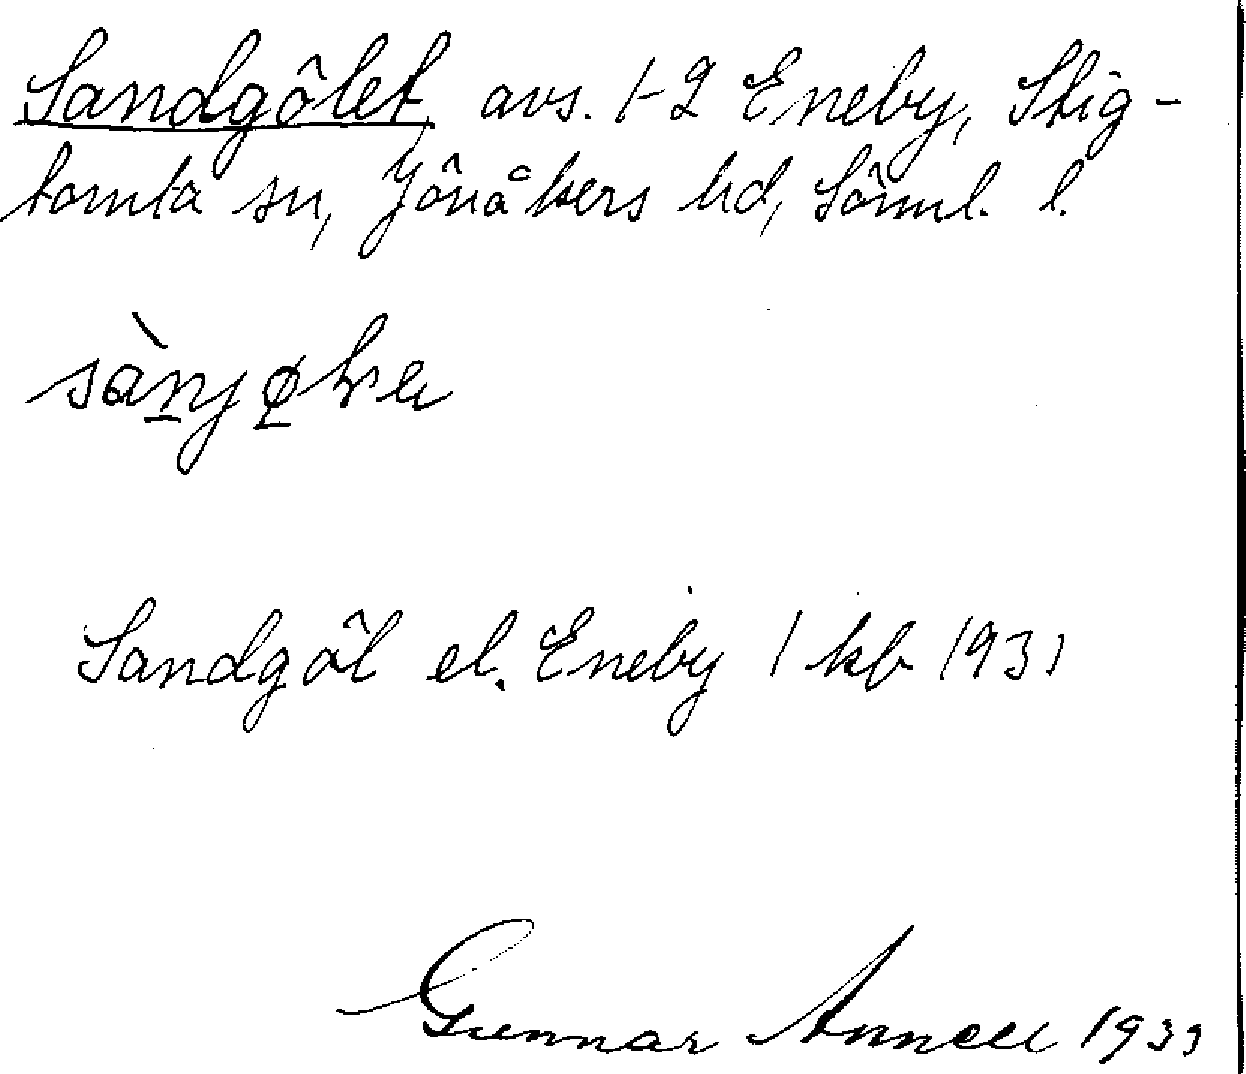 Sandgölet, avs. 1-2 Eneby, Stig-
tomta sn, Jönåkers hd, Sörml. l.
Sandgöl el. Eneby 1 kb 1931
Gunnar Annell 1933